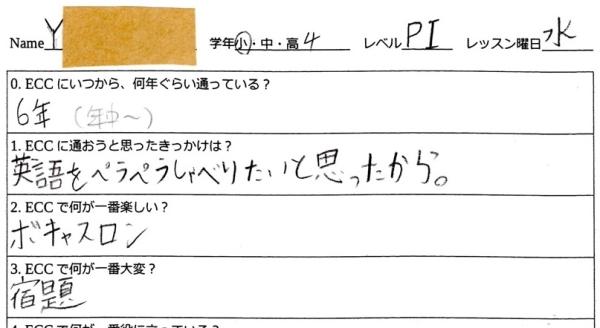 Name Y 学年 小・中・高 4 レベル PI レッスン曜日 水
0. ECC にいつから、何年ぐらい通っている？
6年 (年中〜)
1. ECC に通おうと思ったきっかけは？
英語をペラペラしゃべりたいと思ったから。
2. ECC で何が一番楽しい？
ボキャスロン
3. ECC で何が一番大変？
宿題
4. ECC で何が一番役に立っている？